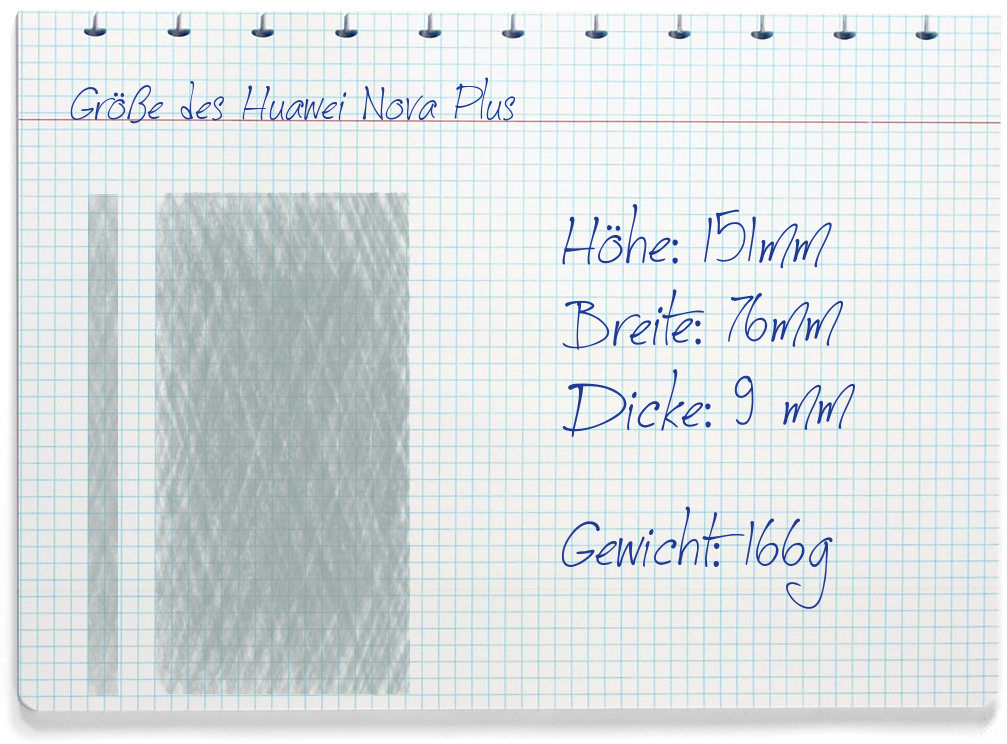 Größe des Huawei Nova Plus
Höhe: 151mm
Breite: 76mm
Dicke: 9 mm
Gewicht: 166g